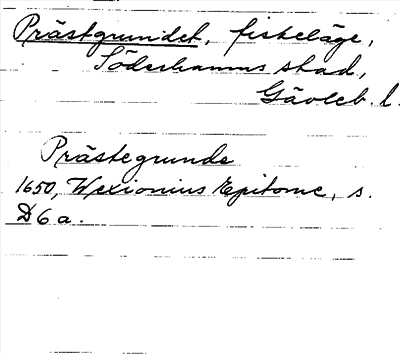 Prästgrundet, fiskeläge,
Söderhamns stad,
Gävleb. l.
Prästegrunde
1650, Wexionius Epitome, s.
D6a.